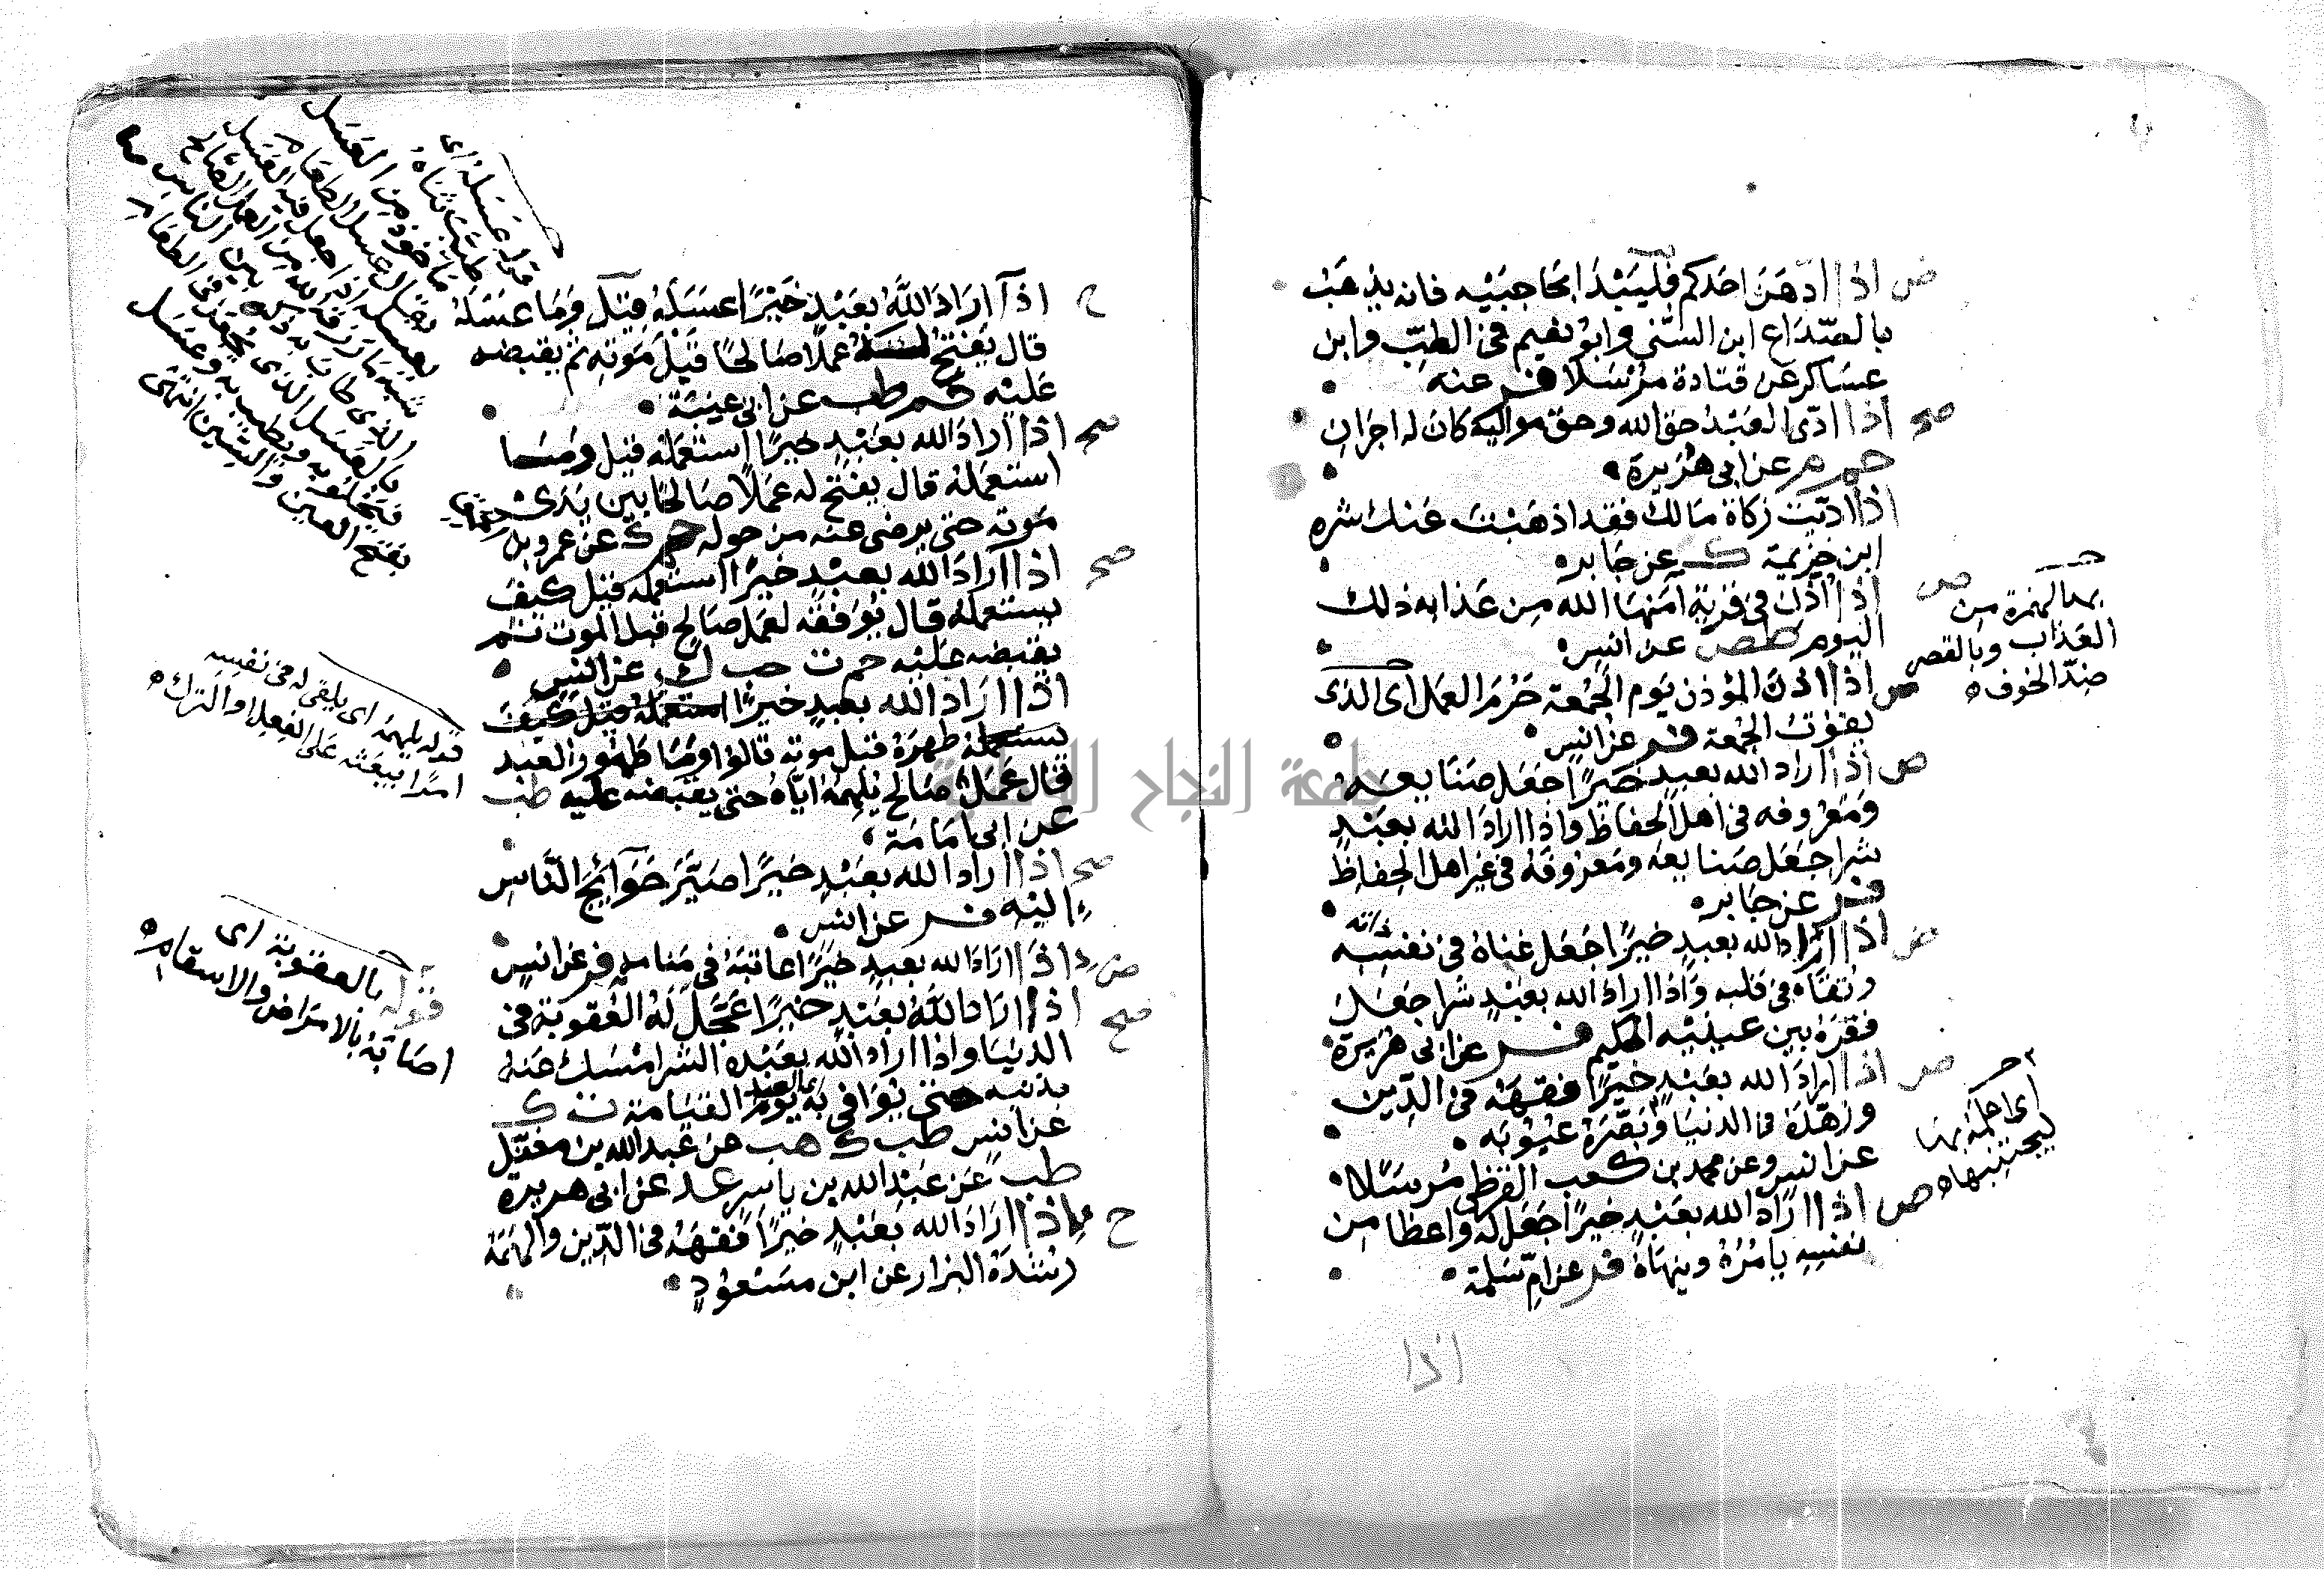 ض اذا ادّهَنَ احَدكم فَليَبْدَأ بحاجبَيْه فانه يذهَبُ
بالصّدَاع ابن السّني وابو نعيم فى الطِبّ وابن
عسَاكر عن قتادة مُرْسَلا فر عنه
صح اذا ادّى العَبْدُ حق الله وحَق مواليه كانَ له اجرَان
حم م عن ابى هُرَيرة
اذا ادّيتَ زكاة مَالك فقد اذهَبْتَ عَنك شره
ابن خزيمة ك عن جَابر
ض اذا اُذّنَ فى قريَةٍ امَنهَا الله من عَذابه ذلك
اليَوم طص عن انس
ض اذا اذّنَ المؤذن يَوم الجُمُعة حَرُمَ العمَل اى الذى
يفوّت الجُمعة فر عن انس
ض اذا اراد الله بعبدٍ خَيرًا جَعَل صَنَايعَه
ومَعْرُوفه فى اهل الحفاظ واذا ارادَ الله بعَبْدٍ
شرا جَعَل صَنايعَه ومَعرُوفَهُ فى غير اهل الحِفاظ
فر عن جَابر
ض اذا ارَادَ الله بعبدٍ خيرًا جَعَل غناهُ فى نفسِه
وتُقَاه فى قلبه وَاذا ارادَ الله بعَبْدٍ شرا جَعَلَ
فقرَهُ بين عينَيْه الحكيم فر عن ابى هُرَيرَة
ض اذا ارادَ الله بعَبْدٍ خيرًا فقهَهُ فى الدّين
وزهّدَهُ فى الدنيَا وبَصّرَهُ عيُوبَه
عن انس وعن محمد بن كعب القرظى مُرسَلا
ض اذا ارَادَ الله بعَبْدٍ خيرًا جَعَل لهُ واعظا من
نفسِه يامُرُهُ وينهَاهُ فر عن امّ سَلمة
اذا
بمد الهمزة من
العَذاب وبالقصر
ضدّ الخوف
اى اعلمَهُ بهَا
ليجتنبهَا
ح اذا ارَادَ اللهُ بعَبْدٍ خَيْرًا عسَلَهُ قِيْلَ وَمَا عسَلَهُ
قال يَفتَحُ له عمَلًا صَالحًا قَبْلَ مَوتِه ثم يقبضه
عَليْه حم طب عن ابى عنَبَة
صح اذا ارادَ الله بعَبْدٍ خيرًا استعمَله قيل ومَا
استعمَلهُ قال يفتحُ له عمَلًا صَالحًا بين يَدَى
مَوته حتى يرضى عنه من حوله حم ك عن عمرو بن
الحمق
صح اذا ارَادَ الله بعبْدٍ خيرًا استعمَله قيْل كيفَ
يستعملهُ قال يُوَفقه لعَمل صَالح قبل الموت ثم
يقبضه عليْه حم ت حب ك عن انس
اذا ارَادَ الله بعبدٍ خيرًا استعملهُ قيل كيفَ
يستعمله طهرَهُ قبل موته قالوا ومَا طهُور العَبْد
قال عَمَل صَالح يُلهمُهُ ايّاهُ حتى يقبضه عليه طب
عَن ابى امَامَة
صح اذا ارادَ الله بعَبْدٍ خيرًا صَيَّرَ حَوَائِجَ النَّاسِ
اليْه فر عن انس
ض اذا ارَادَ الله بعبدٍ خيرًا عاتبَهُ فى مَنَامه فر عن انس
صح اذا ارَادَ اللهُ بعَبْدٍ خيرًا عَجّل لهُ العُقوبَةَ فى
الدنيَا واذا ارادَ الله بعَبْده الشرا مْسَك عنه
بذنبه حتى يُوَافى به يَوم القيَامة ت ك
عن انس طب ك هب عن عبد الله بن مغفل
طب عن عبْد الله بن ياسر عد عن ابى هريرة
ح اذا ارَادَ الله بعَبْدٍ خيرًا فَقهَهُ فى الدّين والهَمَهُ
رُشدَهُ البزار عن ابن مسَعُوْدٍ
قوله عَسَله اى
طيّبَ ثناهُ
مَاخوذ من العَسَل
يقال عسل الطعَام
يعسله اذا جعل فيه العَسَل
شبه مَا رزقه الله من العمل الصَالح
الذى طاب به ذكره بين الناس
بالعَسَل الذى يُجعَل فى الطعَام
فيَحْلو به ويطيب به وعَسَل
بفتح العين والسّين انتهَى
قوله يلهمَه اى يلقى له فى نفسِه
امرًا يبعَثه عَلى الفِعل او الترك
قوله بالعقوبة اى
اصَابَة بالامرَاض والاسقام
جامعة النجاح الوطنية